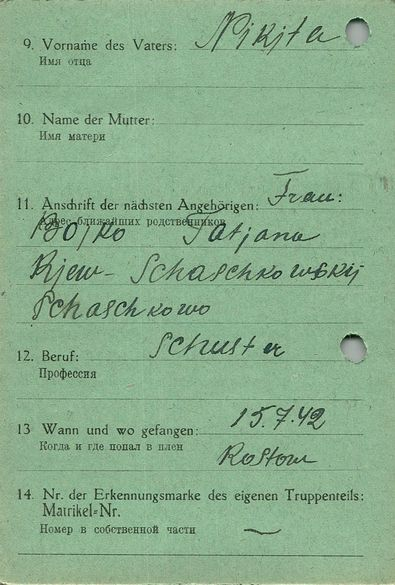 9. Vorname des Vaters: Nikita
Имя отца
10. Name der Mutter:
Имя матери
11. Anschrift der nächsten Angehörigen: Frau:
Адрес ближайших родственников
Bojko Tatjana
Kjew - Schaschkowskij
Schaschkowo
12. Beruf: Schuster
Профессия
13 Wann und wo gefangen: 15.7.42
Когда и где попал в плен Rostow
14. Nr. der Erkennungsmarke des eigenen Truppenteils:
Matrikel=Nr.
Номер в собственной части —